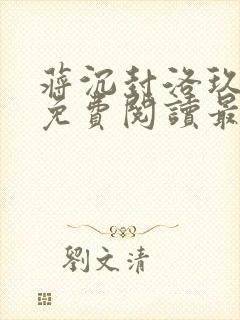 蔣沉封洛玖
免費閱讀最
劉文清